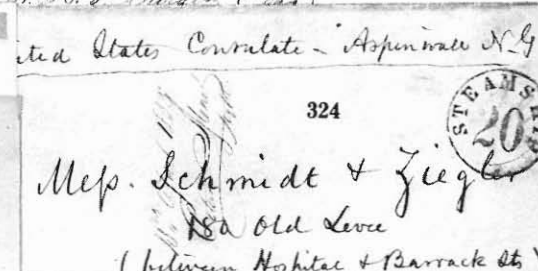 ited States Consulate - Aspinwall N.G
324
STEAMSHIP
20
Mess. Schmidt & Ziegler
180 Old Levee
(between Hospital & Barrack Sts)